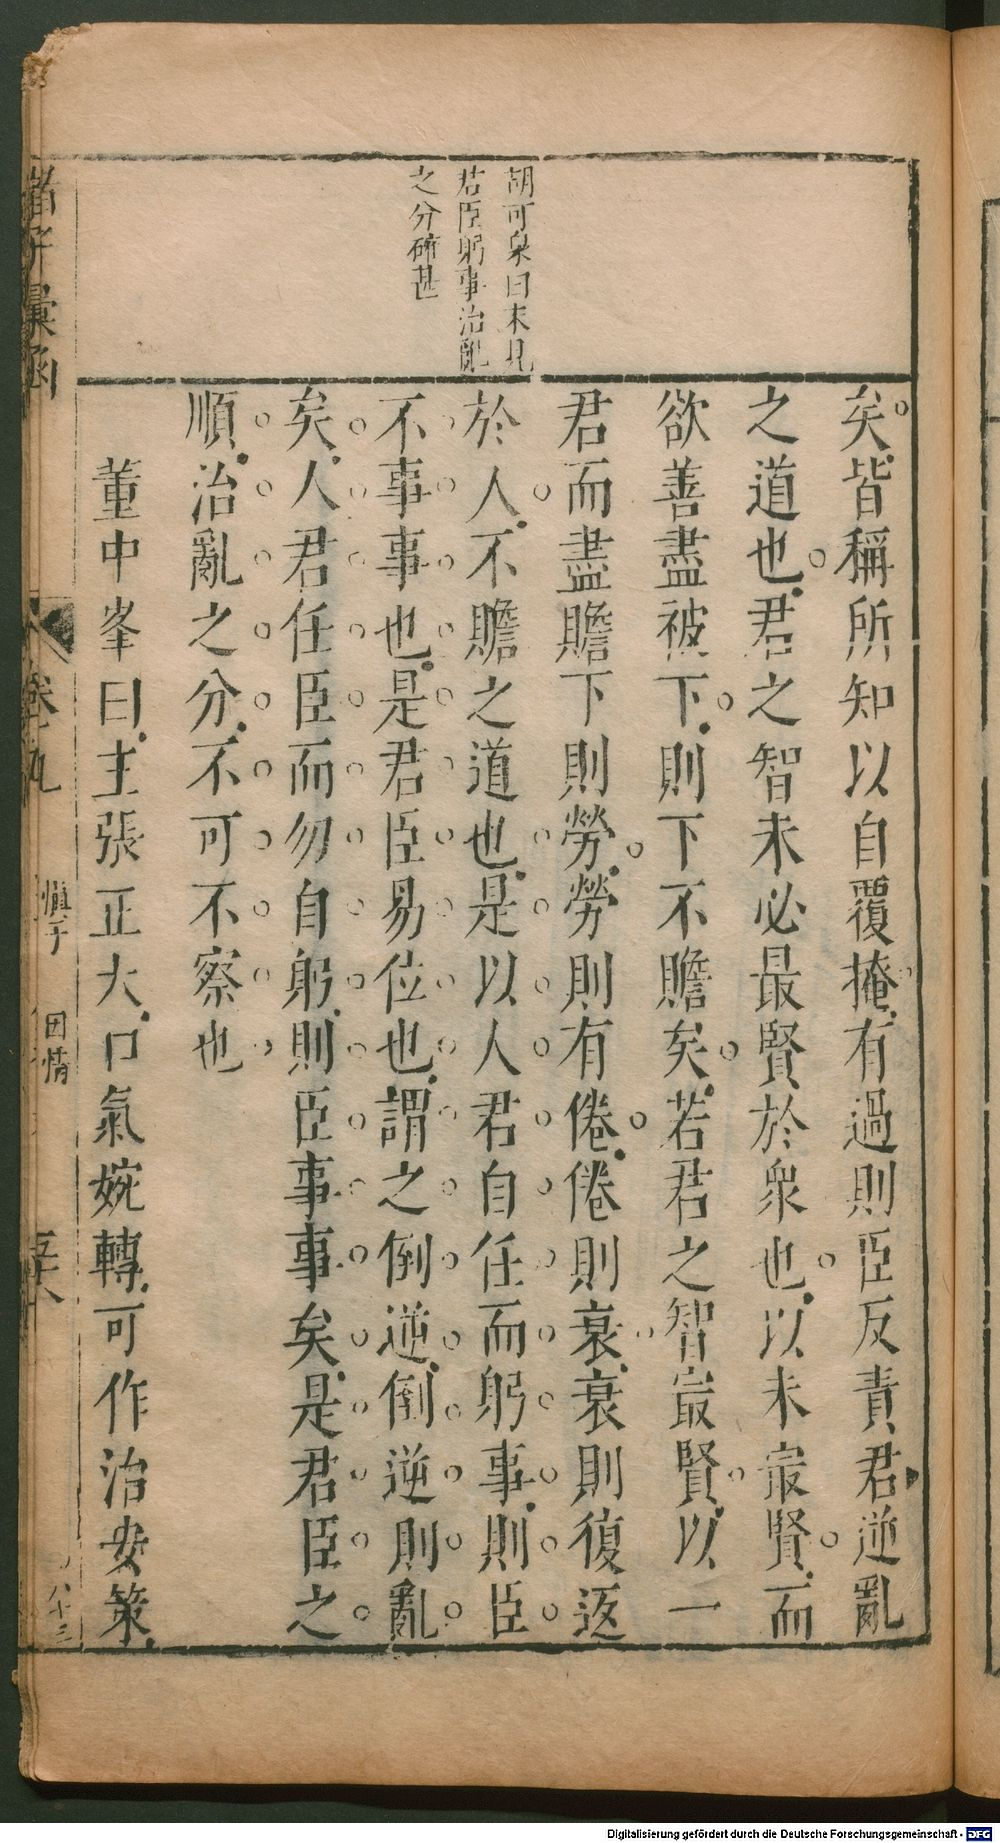 胡可泉曰未見
君臣躬事治亂
之分確甚
矣皆稱所知以自覆掩有過則臣反責君逆亂
之道也君之智未必最賢於衆也以未最賢而
欲善盡被下則下不贍矣若君之智最賢以一
君而盡贍下則勞勞則有倦倦則衰衰則復返
於人不贍之道也是以人君自任而躬事則臣
不事事也是君臣易位也謂之倒逆倒逆則亂
矣人君任臣而勿自躬則臣事事矣是君臣之
順治亂之分不可不察也
董中峯曰主張正大口氣婉轉可作治安策
諸子彙函
卷九
慎子 因情
Digitalisierung gefördert durch die Deutsche Forschungsgemeinschaft - DFG